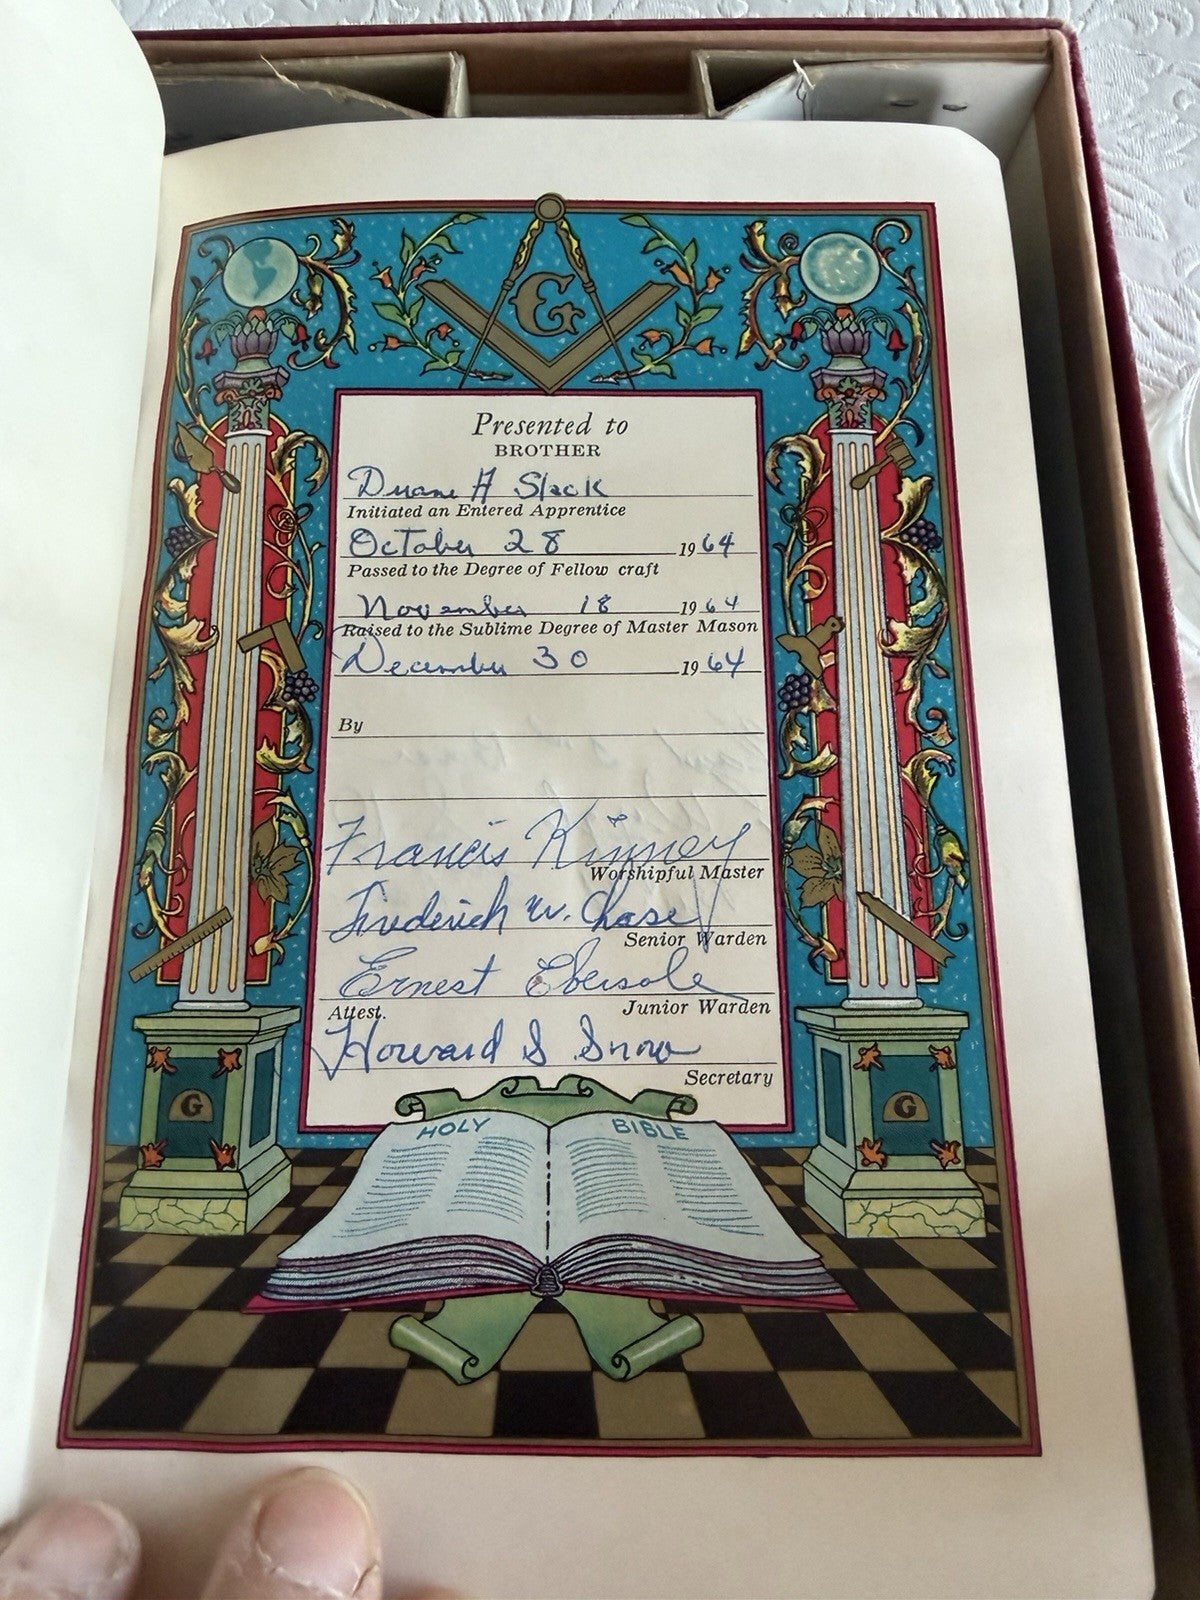 G
Presented to
BROTHER
Duane H Slack
Initiated an Entered Apprentice
October 28 1964
Passed to the Degree of Fellow craft
November 18 1964
Raised to the Sublime Degree of Master Mason
December 30 1964
By
Francis Kinney
Worshipful Master
Frederick W. Chase
Senior Warden
Ernest Ebersole
Attest. Junior Warden
Howard S Snow
Secretary
G G
HOLY BIBLE